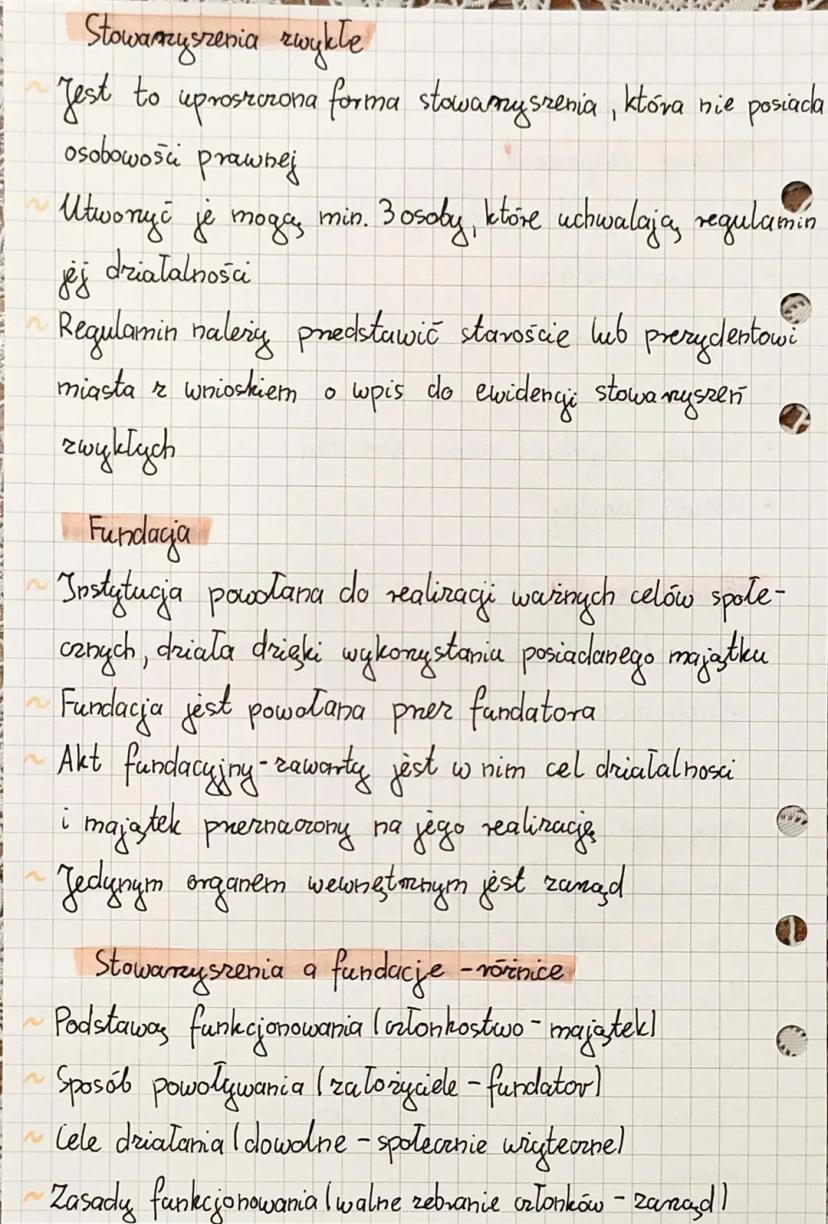 Stowarzyszenia zwykłe
~ Jest to uproszczona forma stowarzyszenia, która nie posiada
osobowości prawnej
~ Utworzyć je mogą min. 3 osoby, które uchwalają regulamin
jej działalności
~ Regulamin należy przedstawić staroście lub prezydentowi
miasta z wnioskiem o wpis do ewidencji stowarzyszeń
zwykłych
Fundacja
~ Instytucja powołana do realizacji ważnych celów społe-
cznych, działa dzięki wykorzystaniu posiadanego majątku
~ Fundacja jest powołana przez fundatora
~ Akt fundacyjny - zawarty jest w nim cel działalnosci
i majątek przeznaczony na jego realizację
~ Jedynym organem wewnętrznym jest zarząd
Stowarzyszenia a fundacje - różnice
~ Podstawą funkcjonowania (członkostwo - majątek)
~ Sposób powoływania (założyciele - fundator)
~ Cele działania (dowolne - społecznie użyteczne)
~ Zasady funkcjonowania (walne zebranie członków - zarząd)